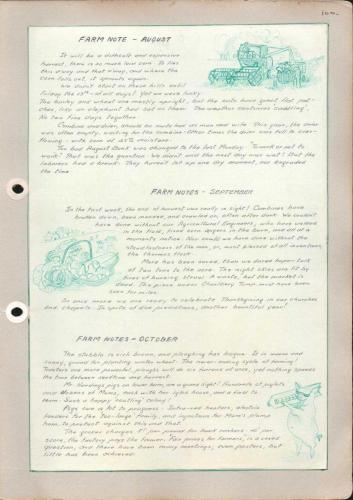 FARM NOTE - AUGUST
It will be a difficult and expensive
harvest, there is so much laid corn. It lies
this way and that way, and where the
corn falls out, it sprouts again.
We didn't start on these hills until
Friday the 13th - of all days! Yet we were lucky
The barley and wheat was mostly upright, but the oats have great flat pat-
ches, like an elephant had sat on them. The weather continues
No two fine days together.
Combine and drier, should be mate and as man and wife. This year, the drier
was often empty, waiting for the combine. Other times the drier was full to over-
flowing - with corn at 25% moisture.
Too bad August Bank was changed to the last Monday. "To work or not to
work? That was the question. We didn't and the next day was wet! But the
labourers had a break. They haven't let up any day moment, nor begrudged
the time
FARM NOTES - SEPTEMBER
In the first week, the end of harvest was really in sight! Combines have
broken down, been mended, and crawled on, often after dark. We couldn't
have done without our Agricultural Engineers, who have welded
in the field, fixed corn augers in the barn, and all at a
moment's notice. Nor could we have done without the
steadfastness of the men, or, most pleasant of all inventions,
the thermos flask.
More has been baled, than we dared hope - lack
of two tons to the acre. The night skies are lit by
fires of burning straw. A waste, but the market is
dead. This piece under Chanctery Tump must have been
seen for miles.
So once more we are ready to celebrate Thanksgiving in our churches
and chapels. In spite of dire predictions, another bountiful year!
FARM NOTES - OCTOBER
The stubble is rich brown, and ploughing has begun. It is warm and
sunny, grand for planting winter wheat. The never-ending cycle of farming!
Tractors are more powerful, ploughs will do six furrows at once, yet nothing spans
the time between seedtime and harvest.
Mr. Hardings pigs on lower farm, are a grand sight! Hundreds of piglets
over acres of
them. Such a happy rootling colony!
Pigs are a lot to progress. Infra-red heaters, electric
fencers for the too-large family, and injections for Mum's plump
ham, to protect against this and that.
The grocer charges for bacon
score, the factory pays the farmer. Fair prices for farmers, is a vexed
question, and there have been many meetings, even posters, but
little has been achieved.